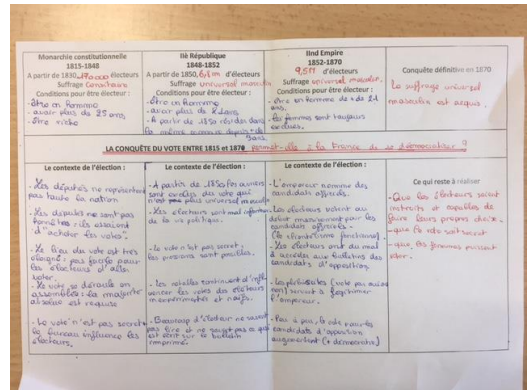 Monarchie constitutionnelle
1815-1848
A partir de 1830, 170 000 électeurs
Suffrage Censitaire
Conditions pour être électeur :
- être un homme
- avoir plus de 25 ans,
- être riche
IIè République
1848-1852
A partir de 1850, d'électeurs
Suffrage universel masculin
Conditions pour être électeur :
- être un homme
- avoir plus de
- A partir de 1850 résider dans
la même commune depuis + de
3 ans.
IInd Empire
1852-1870
d'électeurs
Suffrage universel masculin.
Conditions pour être électeur :
- être un homme de + de 21
ans.
- les femmes sont toujours
exclues.
Conquête définitive en 1870
Le suffrage universel
masculin est acquis.
LA CONQUÊTE DU VOTE ENTRE 1815 et 1870 permet-elle à la France de se démocratiser ?
Le contexte de l'élection :
- Les députés ne représentent
pas toute la nation
- Les députés ne sont pas
ils essaient
d'acheter les votes.
- Le lieu du vote est très
éloigné : pas facile pour
les électeurs d'aller
voter.
- Le vote se déroule en
assemblée : la majorité
absolue est requise
- Le vote n'est pas secret
le bureau influence les
électeurs.
Le contexte de l'élection :
- A partir de 1850 les ouvriers
sont exclus du vote qui
n'est plus universel masculin
- Les électeurs sont mal informés
de la vie politique.
- Le vote n'est pas secret,
les pressions sont possibles.
- Les notables continuent d'influ
encer les votes des électeurs
inexpérimentés et naïfs.
- Beaucoup d'électeurs ne savent
pas lire et ne savent pas ce qui
est écrit sur le bulletin
imprimé.
Le contexte de l'élection :
- L'empereur nomme des
candidats officiels.
- Les électeurs votent au
début massivement pour les
candidats officiels
(le clientélisme fonctionne).
- Les électeurs ont du mal
à accéder aux bulletins des
candidats d'opposition.
- Les plébiscites (vote par oui ou
non) servent à légitimer
l'empereur.
- Peu à peu, le vote pour les
candidats d'opposition
augmentent (+ démocratie)
Ce qui reste à réaliser
- Que les électeurs soient
instruits et capables de
faire leurs propres choix.
- que le vote soit secret
- que les femmes puissent
voter.